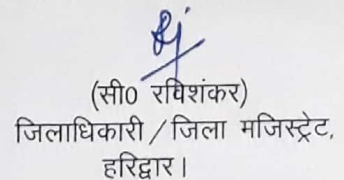 (सी0 रविशंकर)
जिलाधिकारी / जिला मजिस्ट्रेट,
हरिद्वार।